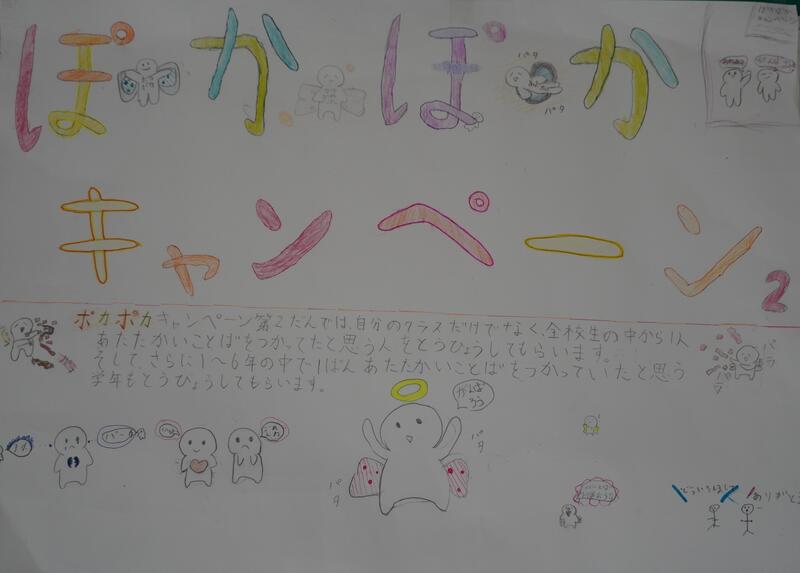 ぽかぽか
パタ
パタ
キャンペーン2
ポカポカキャンペーン第2だんでは、自分のクラスだけでなく、全校生の中から1人
あたたかいことばをつかってたと思う人をとうひょうしてもらいます。
そして、さらに1〜6年の中で1ばん あたたかいことばをつかっていたと思う
学年もとうひょうしてもらいます。
バラ
バラ
がんばろう
パタ
パタ
どういたしまして
ありがとう